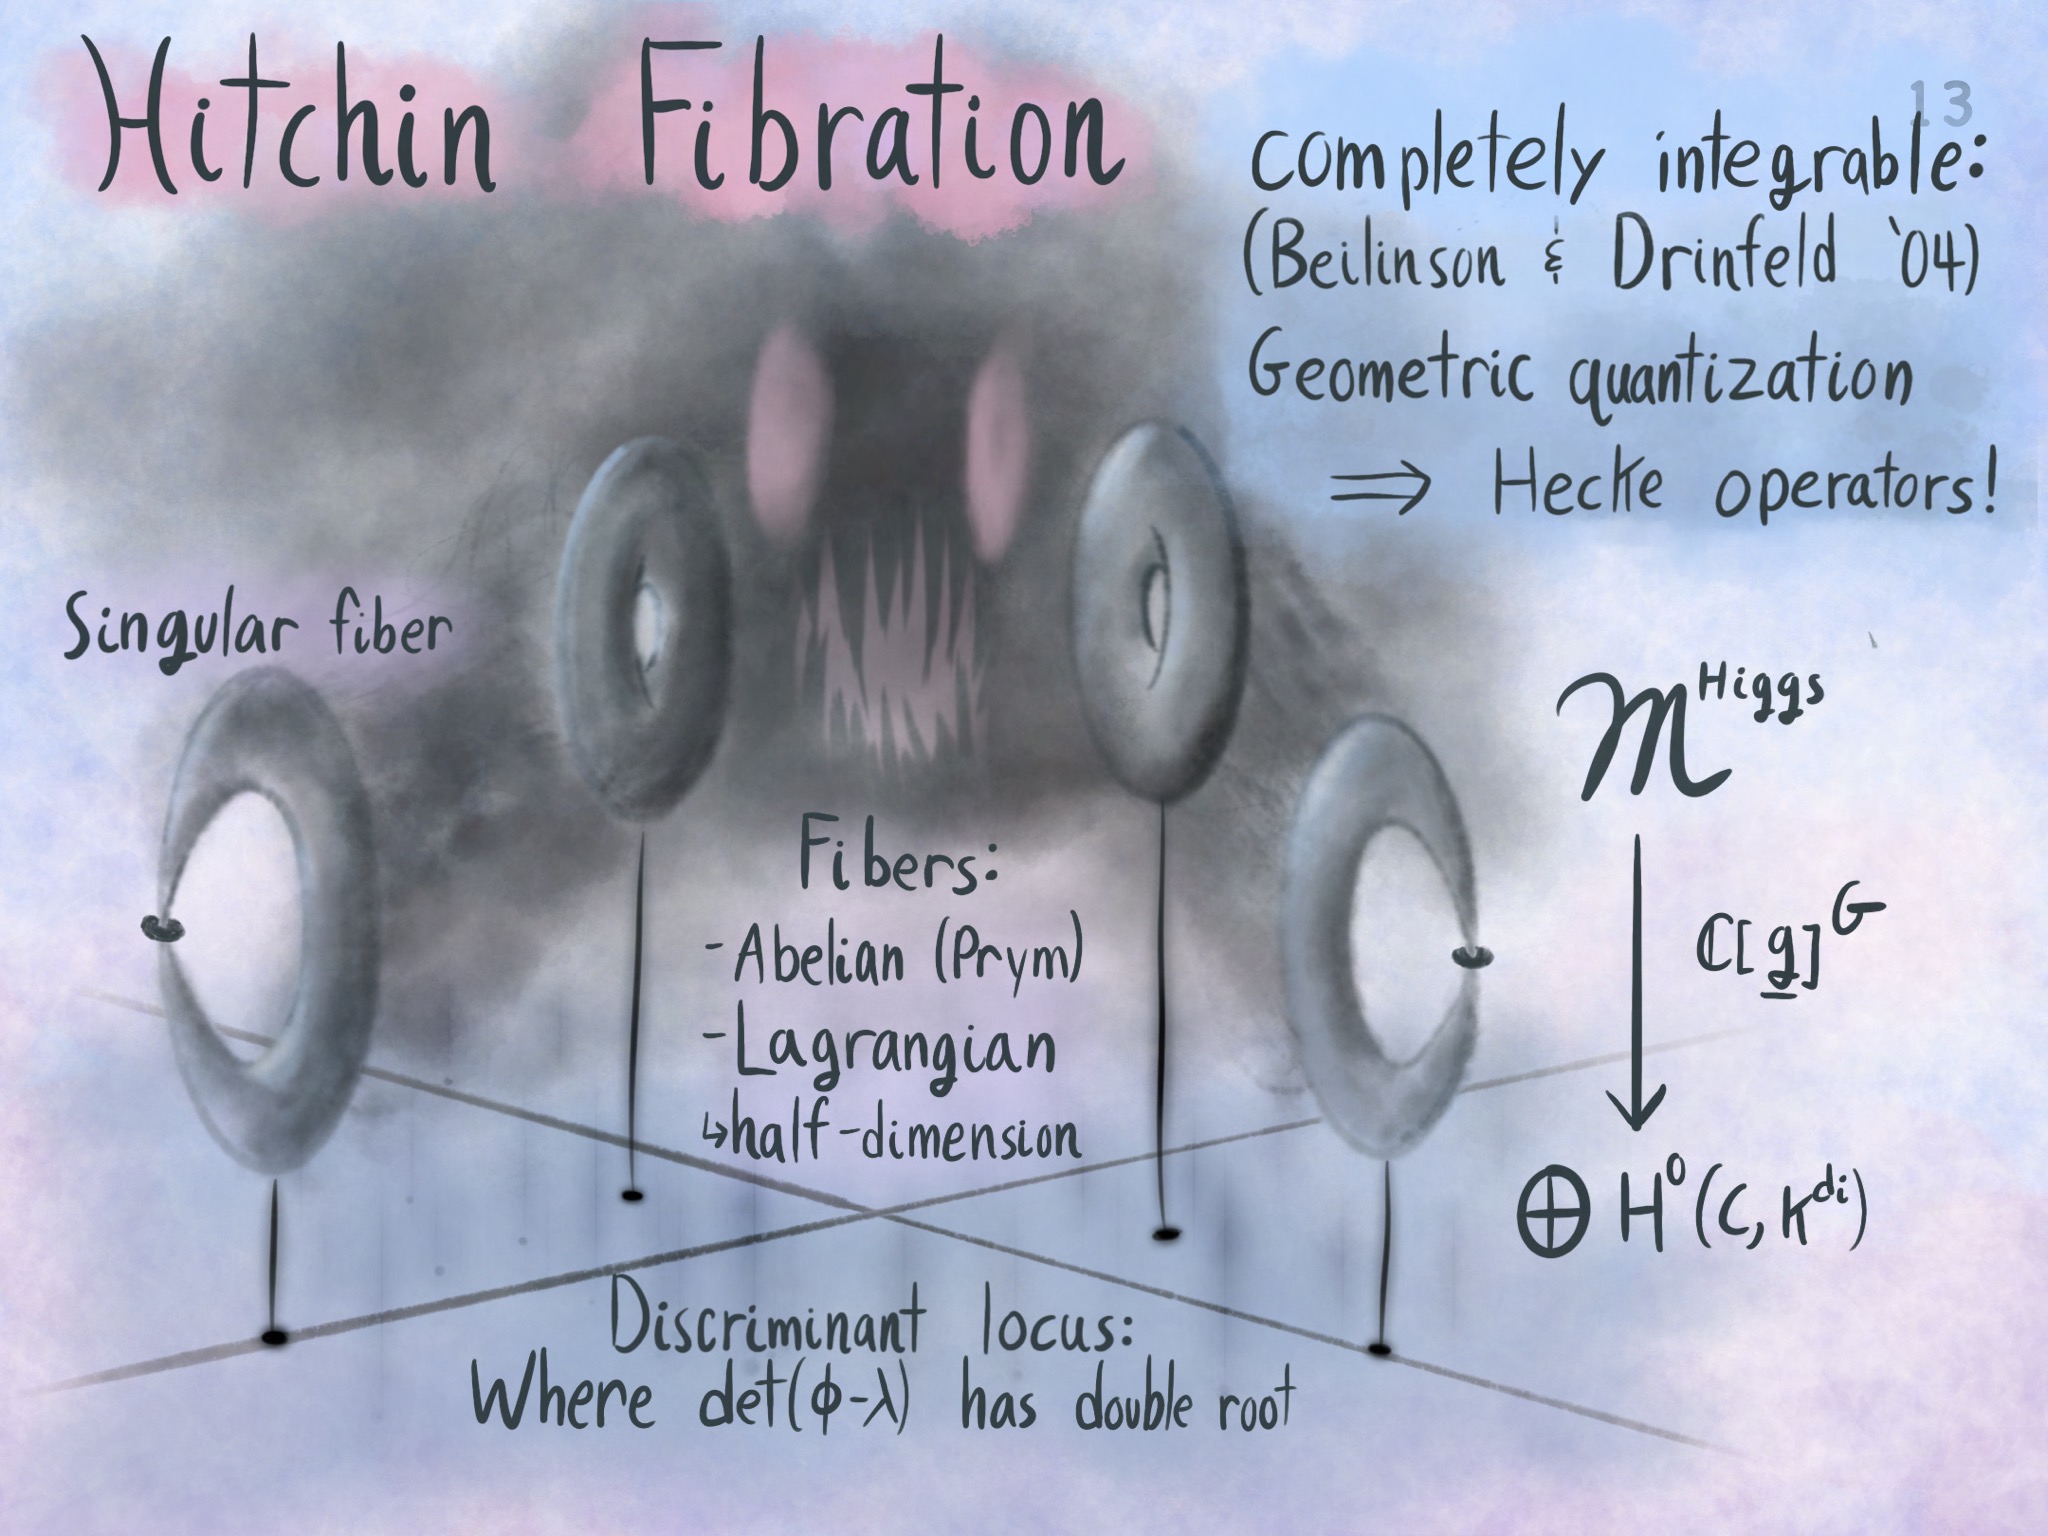 Hitchin Fibration
13
completely integrable:
(Beilinson & Drinfeld '04)
Geometric quantization
⇒ Hecke operators!
Singular fiber
Fibers:
-Abelian (Prym)
-Lagrangian
↳half-dimension
M^Higgs
ℂ[g̲]^G
⊕ H⁰(C, K^di)
Discriminant locus:
Where det(ϕ-λ) has double root